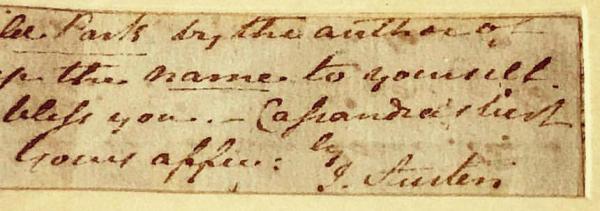 Park by the author of
the name to yourself.
bless you. – Cassandra's best
Yours affec: ly
J. Austen